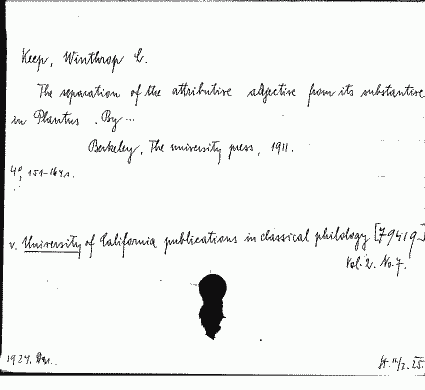 Keep, Winthrop L.
The separation of the attributive adjective from its substantive
in Plautus. By ...
Berkeley, The university press, 1911.
4°, 151-164 s.
v. University of California publications in classical philology [79419]
Vol. 2. No. 7.
1924.